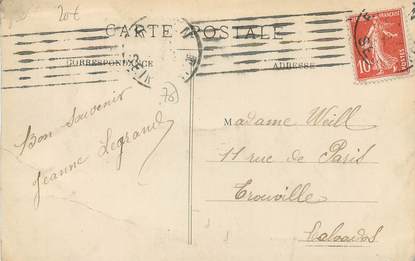 20€
CARTE POSTALE
CORRESPONDANCE
ADRESSE
POSTES
10
76
Bon Souvenir
Jeanne Legrand
MMadame Weill
11 rue de Paris
Trouville
Calvados